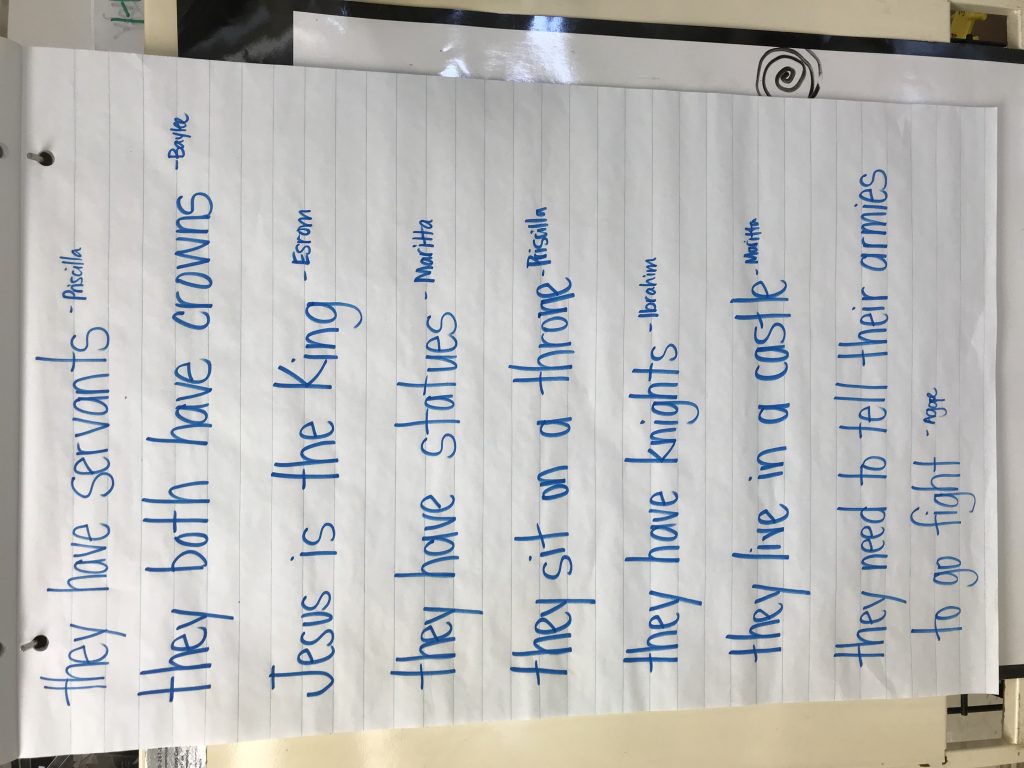 they have servants - Priscilla
they both have crowns - Baylee
Jesus is the King - Esrom
they have statues - Maritta
they sit on a throne - Priscilla
they have knights - Ibrahim
they live in a castle - Maritta
they need to tell their armies
to go fight